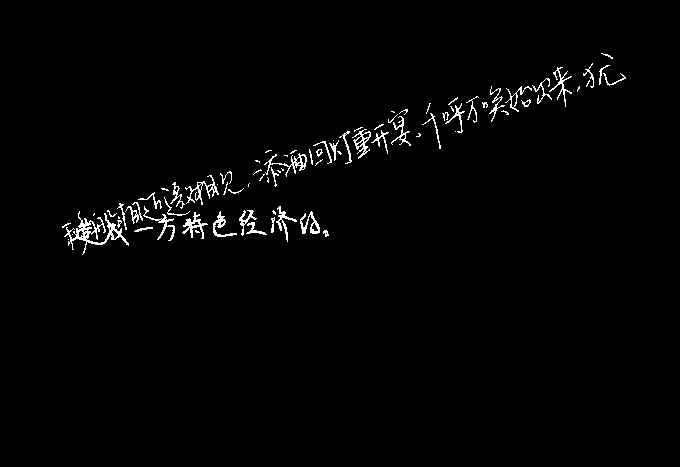 移船相近邀相见,添酒回灯重开宴。千呼万唤始出来,犹
一方特色经济的。